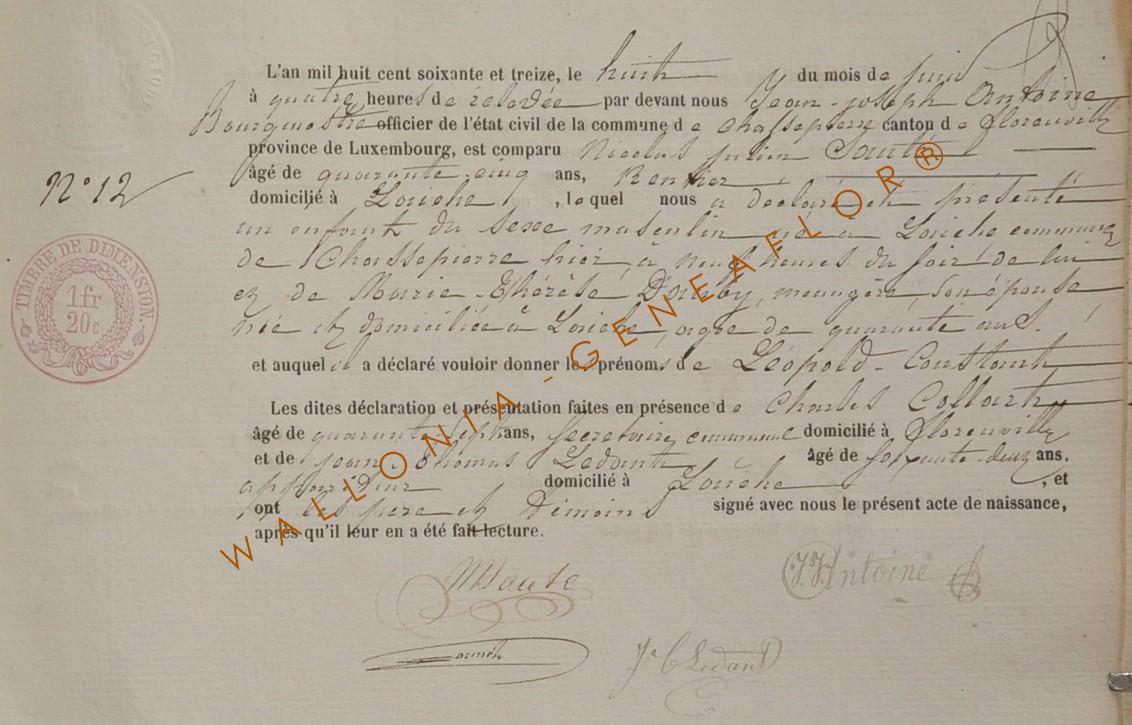 L'an mil huit cent soixante et treize, le huit du mois de juin
à quatre heures de relevée par devant nous Jean-Joseph Antoine
Bourgmestre officier de l'état civil de la commune de Chassepierre canton de Florenville
province de Luxembourg, est comparu Nicolas Julien
N° 12
âgé de quarante-cinq ans, Rentier
domicilié à Laiche, lequel nous a déclaré et présenté
un enfant du sexe masculin né à Laiche commune
de Chassepierre hier, à neuf heures du soir de lui
et de Marie-Thérèse, menagère, son épouse
née et domiciliée à Laiche, agée de quarante ans.
TIMBRE DE DIMENSION
1fr
20c
et auquel il a déclaré vouloir donner les prénoms de Léopold-Constant
Les dites déclaration et présentation faites en présence de Charles Collart
âgé de quarante sept ans, secretaire communal domicilié à Florenville
et de Jean-Thomas Ledant âgé de soixante-deux ans.
appariteur domicilié à Laiche, et
ont les pere et témoins signé avec nous le présent acte de naissance,
après qu'il leur en a été fait lecture.
J.J. Antoine
Ledant
WALLONIA - GENEAFLOR®